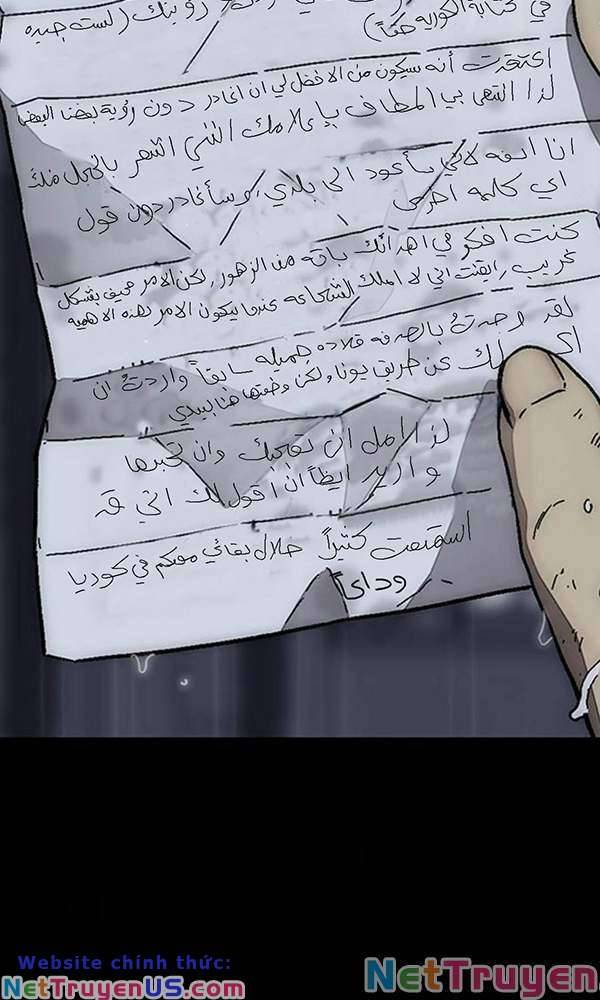 رؤيتك (لست جيده
في كتابة الكوريه حقاً)
اعتقدت أنه سيكون من الافضل لي ان اغادر دون رؤية بعضنا البعض
لذا انتهى بي المطاف بإعلامك انني اشعر بالخجل منك
انا اسفه لاني سأعود الى بلدي، وسأغادر دون قول
اي كلمه اخرى
كنت افكر في اهدائك باقه من الزهور، لكن الامر مخيف بشكل
غريب، ايقنت اني لا املك الشجاعه عندما يكون الامر بهذه الاهميه
لقد وجدتُ بالصدفه قلاده جميله سابقاً واردتُ ان
لك عن طريق يونا، ولكن وضعتها هنا بيدي
لذا امل ان تعجبك وان تخبرها
واريد ايضاً ان اقول لك اني قد
استمتعت كثيراً خلال بقائي معكم في كوريا
وداعاً
Website chính thức:
NetTruyenUS.com
NetTruyen